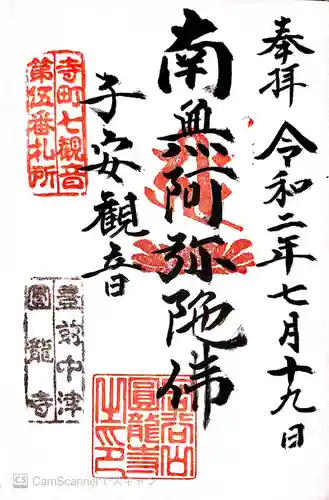 奉拝
令和二年七月十九日
南無阿弥陀佛
子安観音
寺町七観音
第伍番札所
豊前中津
圓龍寺
圓龍寺
之印
CS CamScannerでスキャン